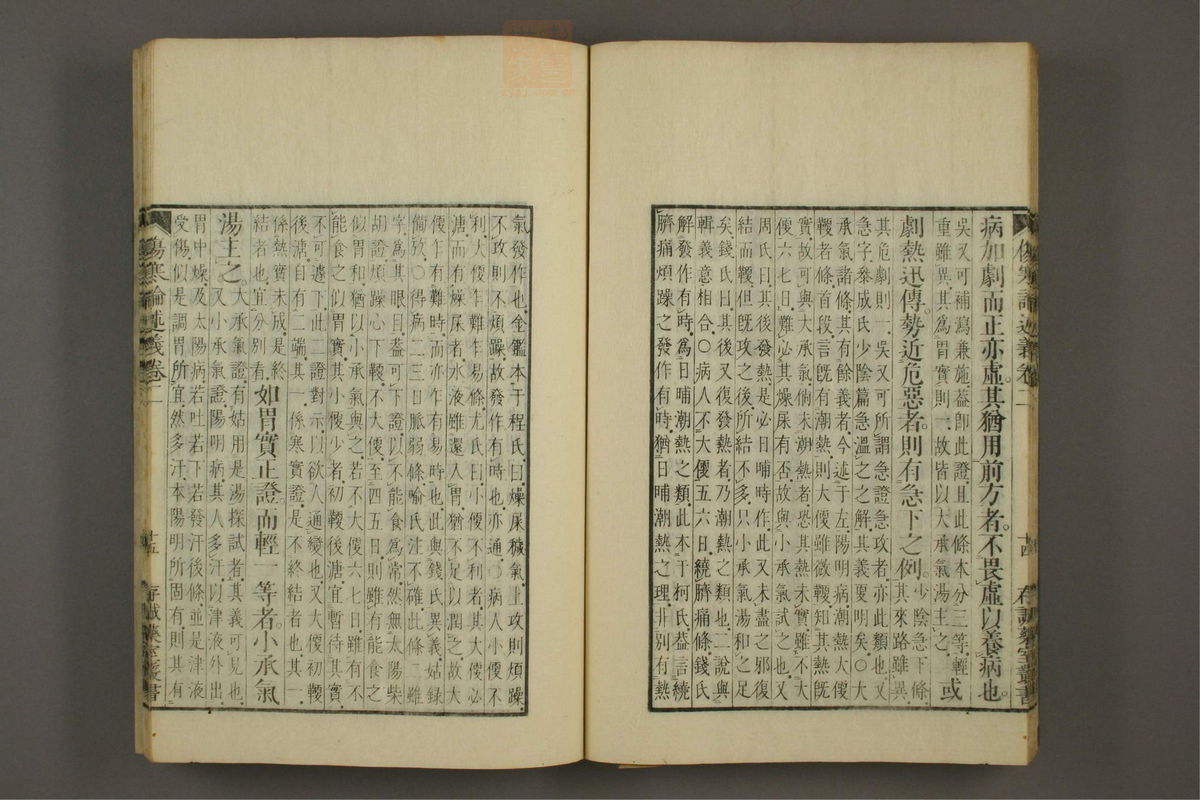 病加劇而正亦虛其猶用前方者不畏虛以養病也
吳又可補瀉兼施益即此證且此條本分三等輕
重雖異其為胃實則一故皆以大承氣湯主之或
劇熱迅傳勢近危惡者則有急下之例少陰急下條其來路雖異
其危劇則一吳又可所謂急證急攻者亦此類也又
急字叅成氏少陰篇急溫之之解其義更明矣○大
承氣諸條其有餘義者今述于左陽明病潮熱大便
鞕者條首段言既有潮熱則大便雖微鞕知其熱既
實故可與大承氣倘未潮熱者恐其熱未實雖不大
便六七日難必其燥屎有否故與小承氣試之也
周氏曰其後發熱是必日晡時作此又未盡之邪復
結而鞕但既攻之後所結不多只小承氣湯和之足
矣錢氏曰其後又復發熱者乃潮熱之類也二說與
輯義意相合○病人不大便五六日繞臍痛條錢氏
解發作有時為日晡潮熱之類此本于柯氏益言繞
臍痛煩躁之發作有時猶日晡潮熱之理非別有熱
傷寒論述義卷二
十四
存誠藥室叢書
氣發作也金鑑本于程氏曰燥屎穢氣上攻則煩躁
不攻則不煩躁故發作有時也亦通○病人小便不
利大便乍難乍易條尤氏曰小便不利者其大便必
溏而有燥屎者水液雖還入胃猶不足以潤之故大
便乍有難時而亦乍有易時也此與錢氏異義姑錄
備攷○得病二三日脈弱條喻氏注不確此條二雖
字為其眼目益可下證以不能食為常然無太陽柴
胡證煩躁心下鞕不大便至四五日則雖有能食之
似胃和猶以小承氣與之若不大便六七日雖有不
能食之似胃實其小便少者初鞕後溏宜暫待其實
不可遽下此二證對示以欲人通變也又大便初鞕
後溏自有二端其一係寒實證是不終結者也其一
係熱實未成是終結者也宜分別看如胃實正證而輕一等者小承氣
湯主之大承氣證有姑用是湯探試者其義可見也
又小承氣證陽明病其人多汗以津液外出
胃中燥及太陽病若吐若下若發汗後條並是津液
受傷似是調胃所宜然多汗本陽明所固有則其有
傷寒論述義卷二
十五
存誠藥室叢書